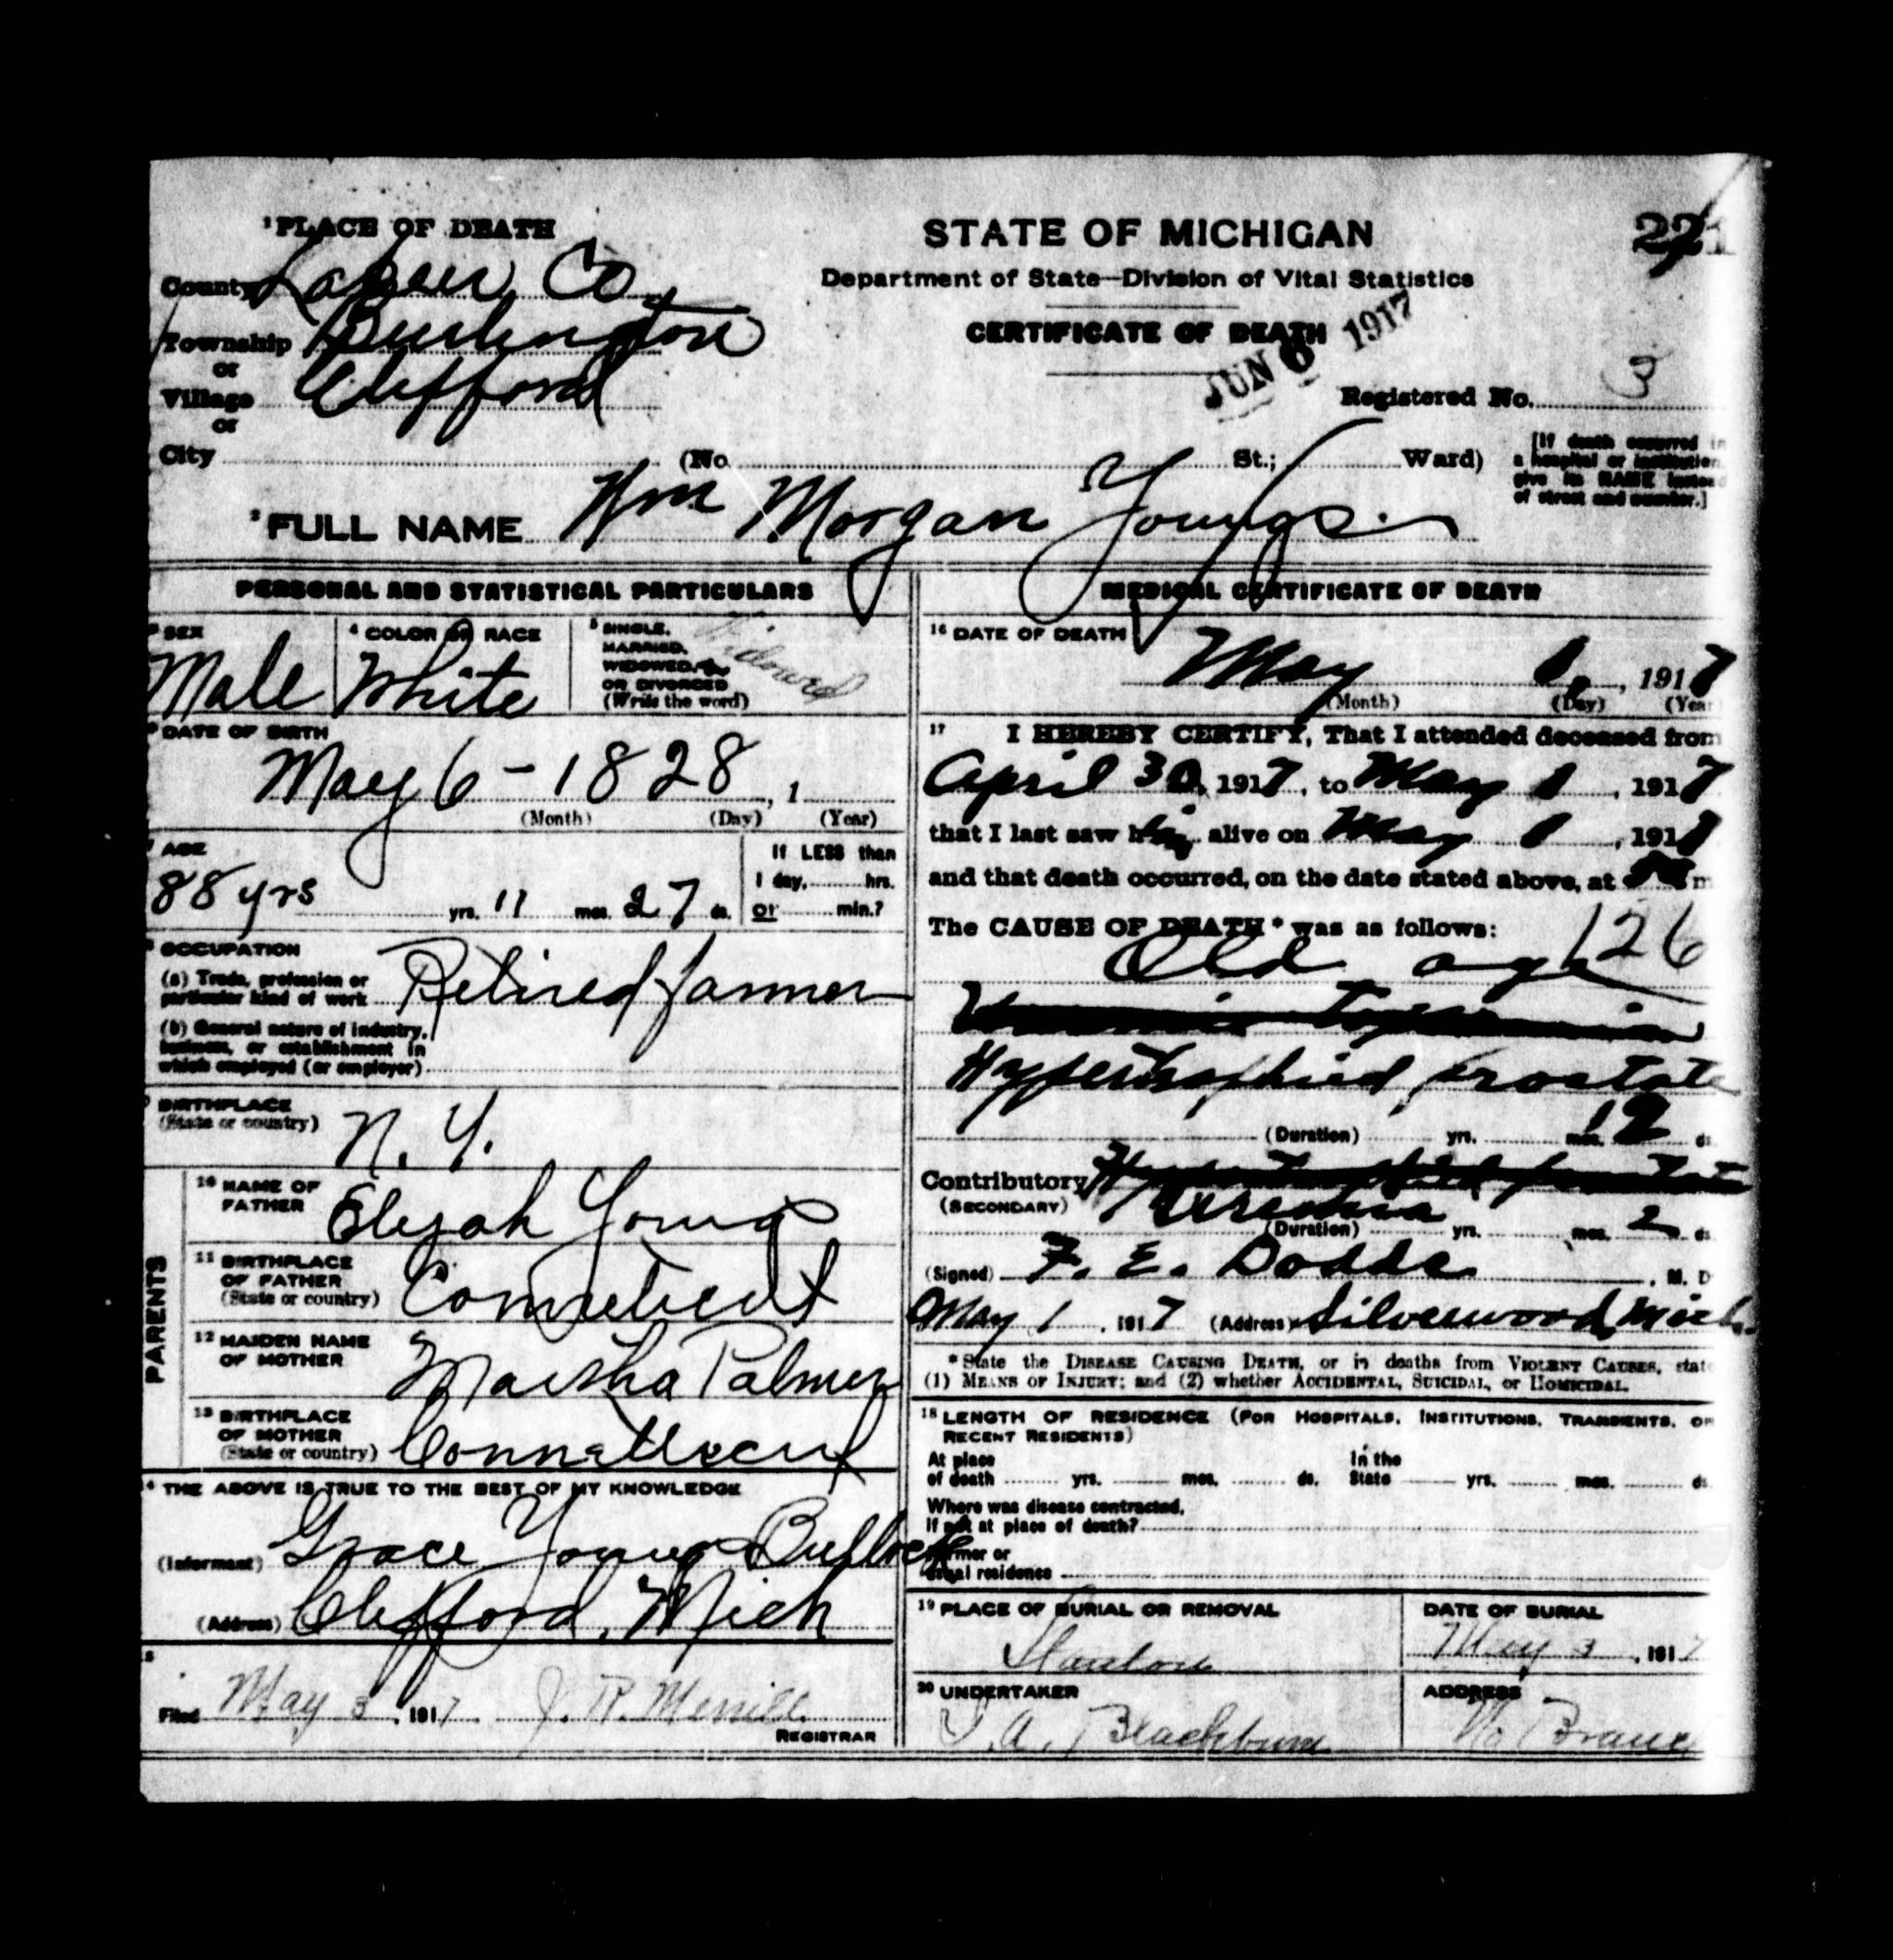 1 PLACE OF DEATH
County Lapeer Co.
Township Burlington
or
Village Clifford
or
City (No. St.; Ward)
STATE OF MICHIGAN
Department of State—Division of Vital Statistics
CERTIFICATE OF DEATH
JUN 6 1917
221
Registered No. 3
[If death occurred in
a hospital or institution
give its NAME instead
of street and number.]
2 FULL NAME Wm Morgan Youngs
PERSONAL AND STATISTICAL PARTICULARS
3 SEX
Male
4 COLOR OR RACE
White
5 SINGLE,
MARRIED,
WIDOWED,
OR DIVORCED
(Write the word)
Widowed
DATE OF BIRTH
May 6 - 1828, 1
(Month) (Day) (Year)
7 AGE
88 yrs yrs. 11 mos. 27 ds.
If LESS than
1 day, hrs.
or min.?
OCCUPATION
(a) Trade, profession or
particular kind of work Retired farmer
(b) General nature of industry,
business, or establishment in
which employed (or employer)
BIRTHPLACE
(State or country) N. Y.
PARENTS
10 NAME OF
FATHER Elijah Youngs
11 BIRTHPLACE
OF FATHER
(State or country) Connecticut
12 MAIDEN NAME
OF MOTHER Martha Palmer
13 BIRTHPLACE
OF MOTHER
(State or country) Connetticut
14 THE ABOVE IS TRUE TO THE BEST OF MY KNOWLEDGE
(Informant) Grace Youngs Bullock
(Address) Clifford, Mich
Filed May 3, 1917 J. R. Merrill
REGISTRAR
MEDICAL CERTIFICATE OF DEATH
16 DATE OF DEATH
May 1, 1917
(Month) (Day) (Year
17 I HEREBY CERTIFY, That I attended deceased from
April 30, 1917, to May 1, 1917
that I last saw him alive on May 1, 1917
and that death occurred, on the date stated above, at m
The CAUSE OF DEATH* was as follows:
126
Old age
Hypertrophied prostate
(Duration) yrs. mos. 12 ds
Contributory
(SECONDARY) Uraemia
(Duration) yrs. mos. 2 ds
(Signed) F. E. Dodds, M. D
May 1, 1917 (Address) Silverwood Mich.
*State the DISEASE CAUSING DEATH, or in deaths from VIOLENT CAUSES, state
(1) MEANS OF INJURY; and (2) whether ACCIDENTAL, SUICIDAL, or HOMICIDAL.
18 LENGTH OF RESIDENCE (FOR HOSPITALS, INSTITUTIONS, TRANSIENTS, OR
RECENT RESIDENTS)
At place
of death yrs. mos. ds.
In the
State yrs. mos. ds
Where was disease contracted,
If not at place of death?
Former or
usual residence
19 PLACE OF BURIAL OR REMOVAL
DATE OF BURIAL
May 3, 1917
20 UNDERTAKER
A. Blackburn
ADDRESS
No Branch